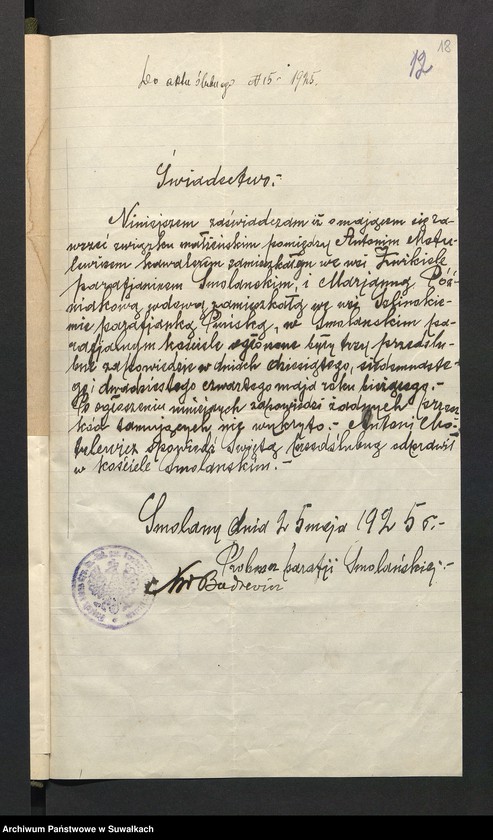 18
12
Do aktu ślubnego № 15 - 1925.
Świadectwo.-
Niniejszem zaświadczam iż o mającem się za-
wrzeć związku małżeńskim pomiędzy Antonim Mate-
lewiczem kawalerem zamieszkałym we wsi
parafjaninem Smolańskim, i Marjanną
wdową zamieszkałą we wsi
parafjanką Puńską, w Smolańskim pa-
rafjalnym kościele ogłoszone były trzy przedślu-
bne zapowiedzie w dniach dziesiątego, siedemnaste-
go i dwudziestego czwartego maja roku bieżącego.-
Po ogłoszeniu niniejszych zapowiedzi żadnych przesz-
kód tamujących nie wykryto.- Antoni Ma-
telewicz spowiedź świętą przedślubną odprawił
w kościele Smolańskim.-
Smolany dnia 25 maja 1925 r.-
Proboszcz parafji Smolańskiej.-
Archiwum Państwowe w Suwałkach